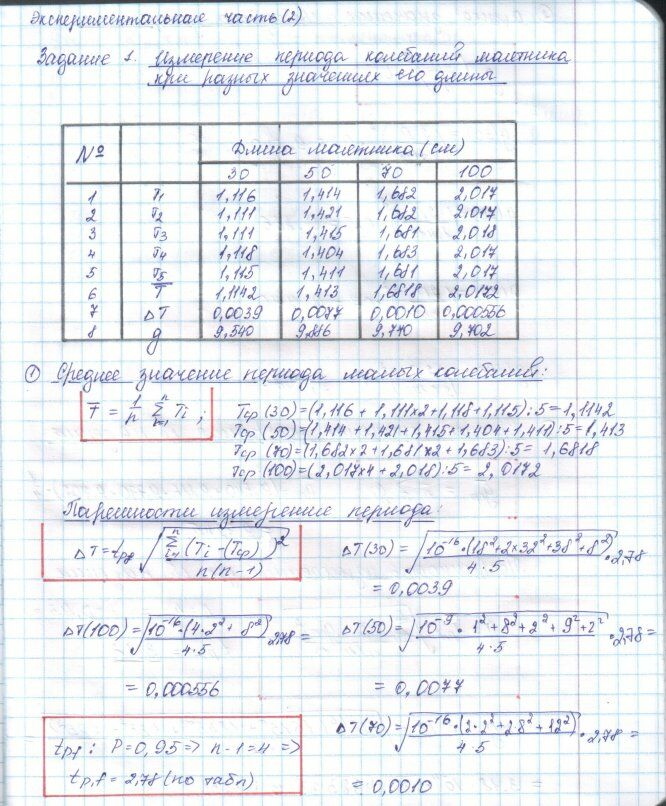 Экспериментальная часть (2)
Задание 1. Измерение периода колебаний маятника
при разных значениях его длины
№ Длина маятника (см)
30 50 70 100
1 T1 1,116 1,414 1,682 2,017
2 T2 1,111 1,421 1,682 2,017
3 T3 1,111 1,415 1,681 2,018
4 T4 1,118 1,404 1,683 2,017
5 T5 1,115 1,411 1,681 2,017
6 T̅ 1,1142 1,413 1,6818 2,0172
7 ΔT 0,0039 0,0077 0,0010 0,000556
8 g 9,540 9,886 9,770 9,702
① Среднее значение периода малых колебаний:
T̅ = 1/n Σ(i=1)^n Ti ; Tср (30)=(1,116 + 1,111×2+1,118+1,115):5=1,1142
Tср (50)=(1,414+1,421+1,415+1,404+1,411):5=1,413
Tср (70)=(1,682×2+1,681×2+1,683):5= 1,6818
Tср (100)=(2,017×4+2,018):5= 2,0172
Парешности измерение периода:
ΔT=tpf √(Σ(i=1)^n (Ti-(Tср))²/n(n-1)) ΔT(30)=√(10⁻¹⁶·(18²+2×32²+38²+8²)/4·5)·2,78
= 0,0039
ΔT(100)=√(10⁻¹⁶·(4·2²+8²)/4·5) 2,78= ΔT(50)=√(10⁻⁹·1²+8²+2²+9²+2²/4·5)·2,78=
= 0,000556 = 0,0077
tpf: P=0,95=> n-1=4 => ΔT(70)=√(10⁻¹⁶·(2·2²+28²+12²)/4·5)·2,78=
tp,f=2,78(по табл) =0,0010